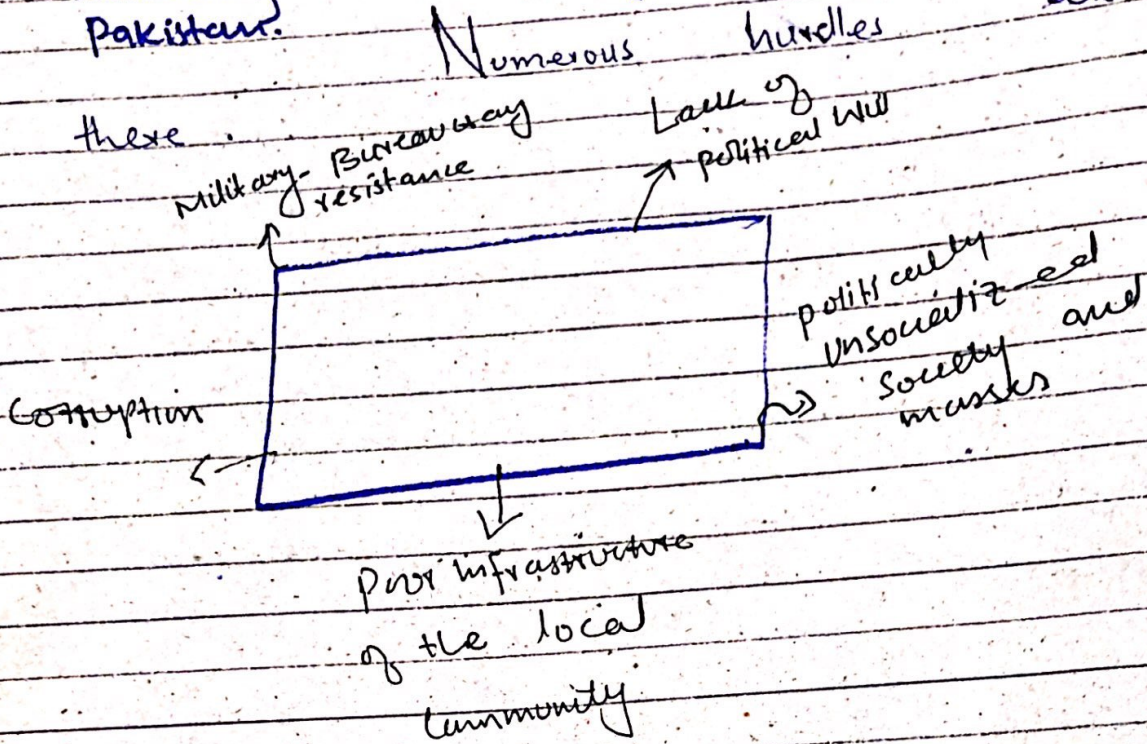 Pakistan. Numerous hurdles
there.
Military-Bureaucracy
resistance
Lack of
political Will
politically
Unsocietiz-ed
Society and
masses
Corruption
Poor infrastructure
of the local
Community